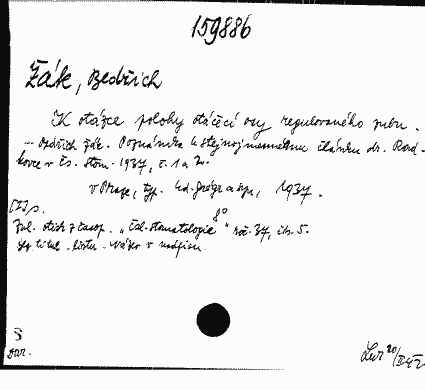 159886
Žák, Bedřich
K otázce polohy otáčecí osy regulovaného zubu.
— Bedřich Žák. Poznámka k stejnojmennému článku dr. Rad-
kovce v Čs. stom. 1937, č. 1 a 2.
v Praze, typ. Ed. Grégr a syn, 1937.
8°
Zvl. otisk z časop. „Čsl. stomatologie" roč. 37, čís. 5.
Bez titul. listu. Název v nadpisu.
S
dar.